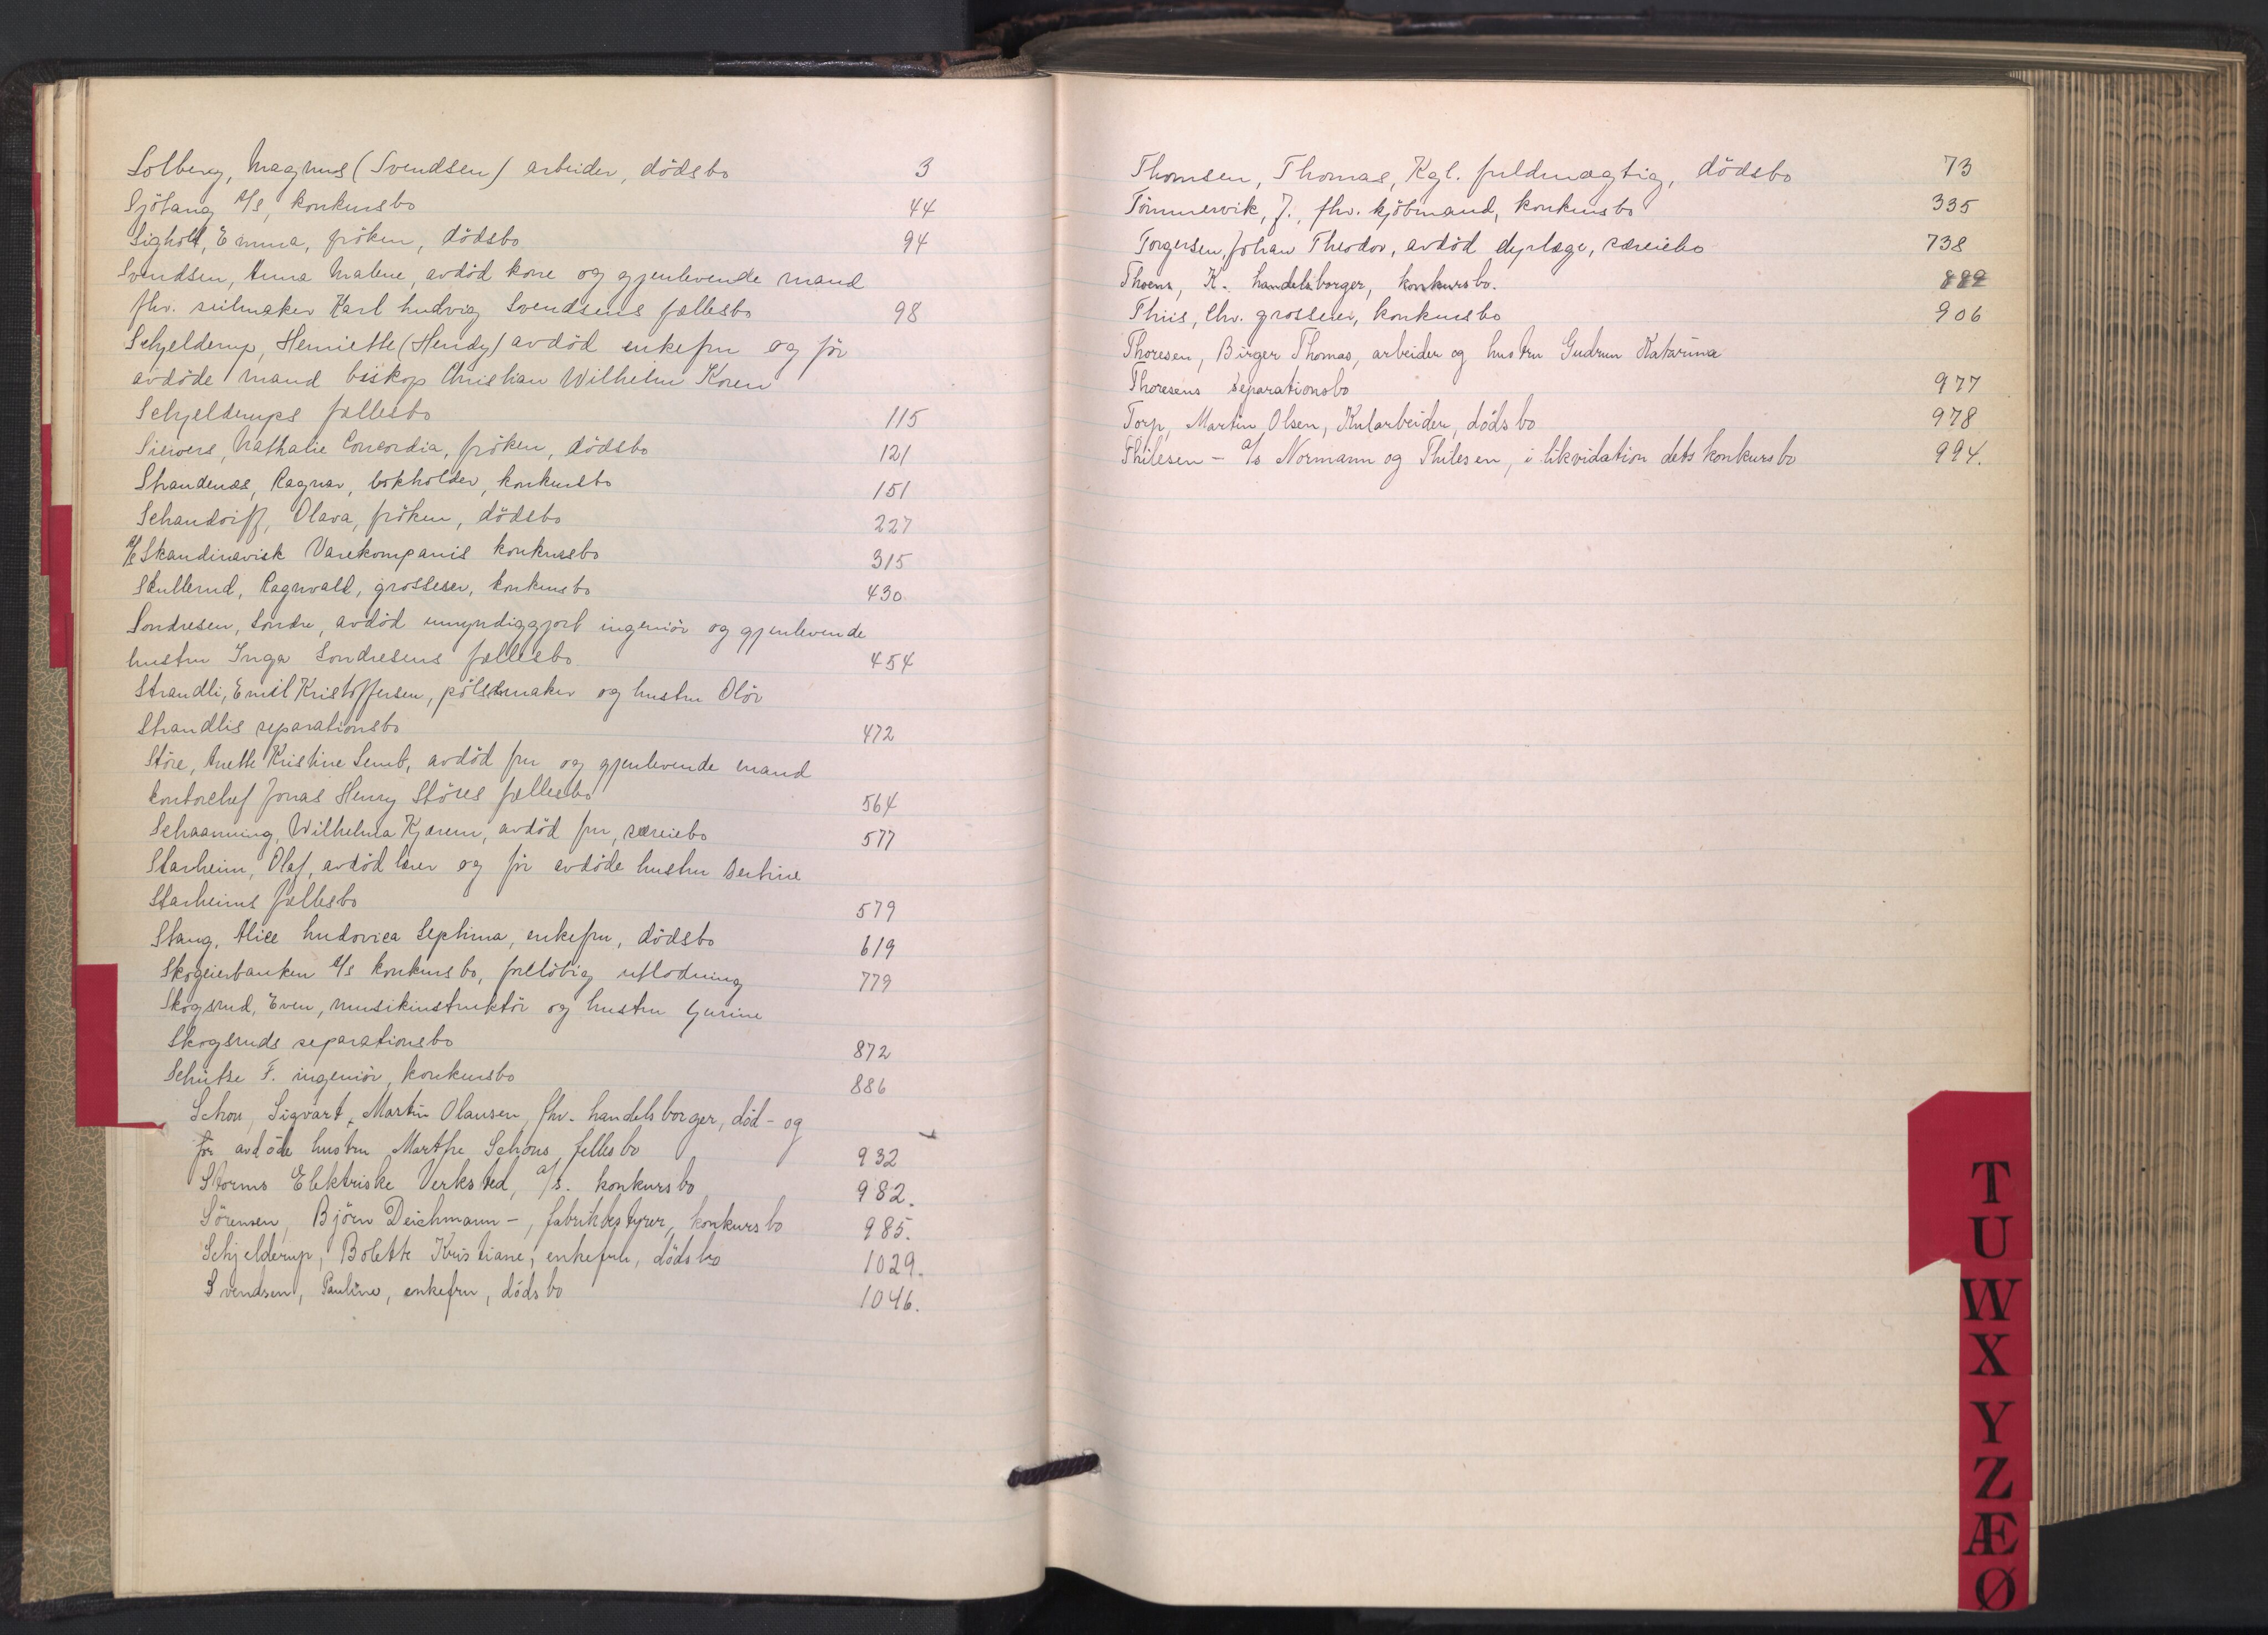 Solberg, Magnus (Svendsen) arbeider, dödsbo 3
Sjötang A/S, konkursbo 44
Sigholt, Emma, fröken, dödsbo 94
Svendsen, Anna Malene, avdöd kone og gjenlevende mand
fhv. seilmaker Karl Ludvig Svendsens fællesbo 98
Schjelderup, Henriette (Hendy) avdöd enkefru og för
avdöde mand biskop Christian Wilhelm Koren
Schjelderups fællesbo 115
Sievers, Nathalie Concordia, fröken, dödsbo 121
Strandenæs, Ragnar, bokholder, konkursbo 151
Schandorff, Olava, fröken, dödsbo 227
A/S Skandinavisk Varekompanis konkursbo 315
Skullerud, Ragnvald, grosserer, konkursbo 430
Sondresen, Sondre, avdöd umyndiggjort ingeniör og gjenlevende
hustru Inga Sondresens fællesbo 454
Strandli, Emil Kristoffersen, pölsemaker og hustru Olör
Strandlis separationsbo 472
Störe, Anette Kristine Semb, avdöd fru og gjenlevende mand
kontorchef Jonas Henry Störes fællesbo 564
Schaanning, Wilhelma Kjærem, avdöd fru, særeiebo 577
Starheim, Olaf, avdöd lærer og för avdöde hustru Sertine
Starheims fællesbo 579
Stang, Alice Ludovica Septima, enkefru, dödsbo 619
Skogeierbanken A/S konkursbo, foreløbig utlodning 779
Skogsrud, Even, musikinstruktör og hustru Gurine
Skogsruds separationsbo 872
Schütze F. ingeniör, konkursbo 886
Schou, Sigvart Martin Olausen, fhv. handelsborger, död - og
för avdöde hustru Marthe Schous fellesbo 932
Storms Elektriske Verksted, a/s. konkursbo 982.
Sörensen, Björn Deichmann -, fabrikbestyrer, konkursbo 985.
Schjelderup, Bolette Kristiane, enkefru, dödsbo 1029.
Svendsen, Pauline, enkefru, dödsbo 1046.
Thomsen, Thomas, Kgl. fuldmægtig, dödsbo 73
Tömmervik, J., fhv. kjöbmand, konkursbo 335
Torgersen, Johan Theodor, avdöd dyrlæge, særeiebo 738
Thoens, K. handelsborger, konkursbo. 882
Thiis, Chr. grosserer, konkursbo 906
Thoresen, Birger Thomas, arbeider og hustru Gudrun Katarina
Thoresens separationsbo 977
Torp, Martin Olsen, Kularbeider, dödsbo 978
Thilesen - a/s Normann og Thilesen, i likvidation dets konkursbo 994.
T
U
W
X
Y
Z
Æ
Ø